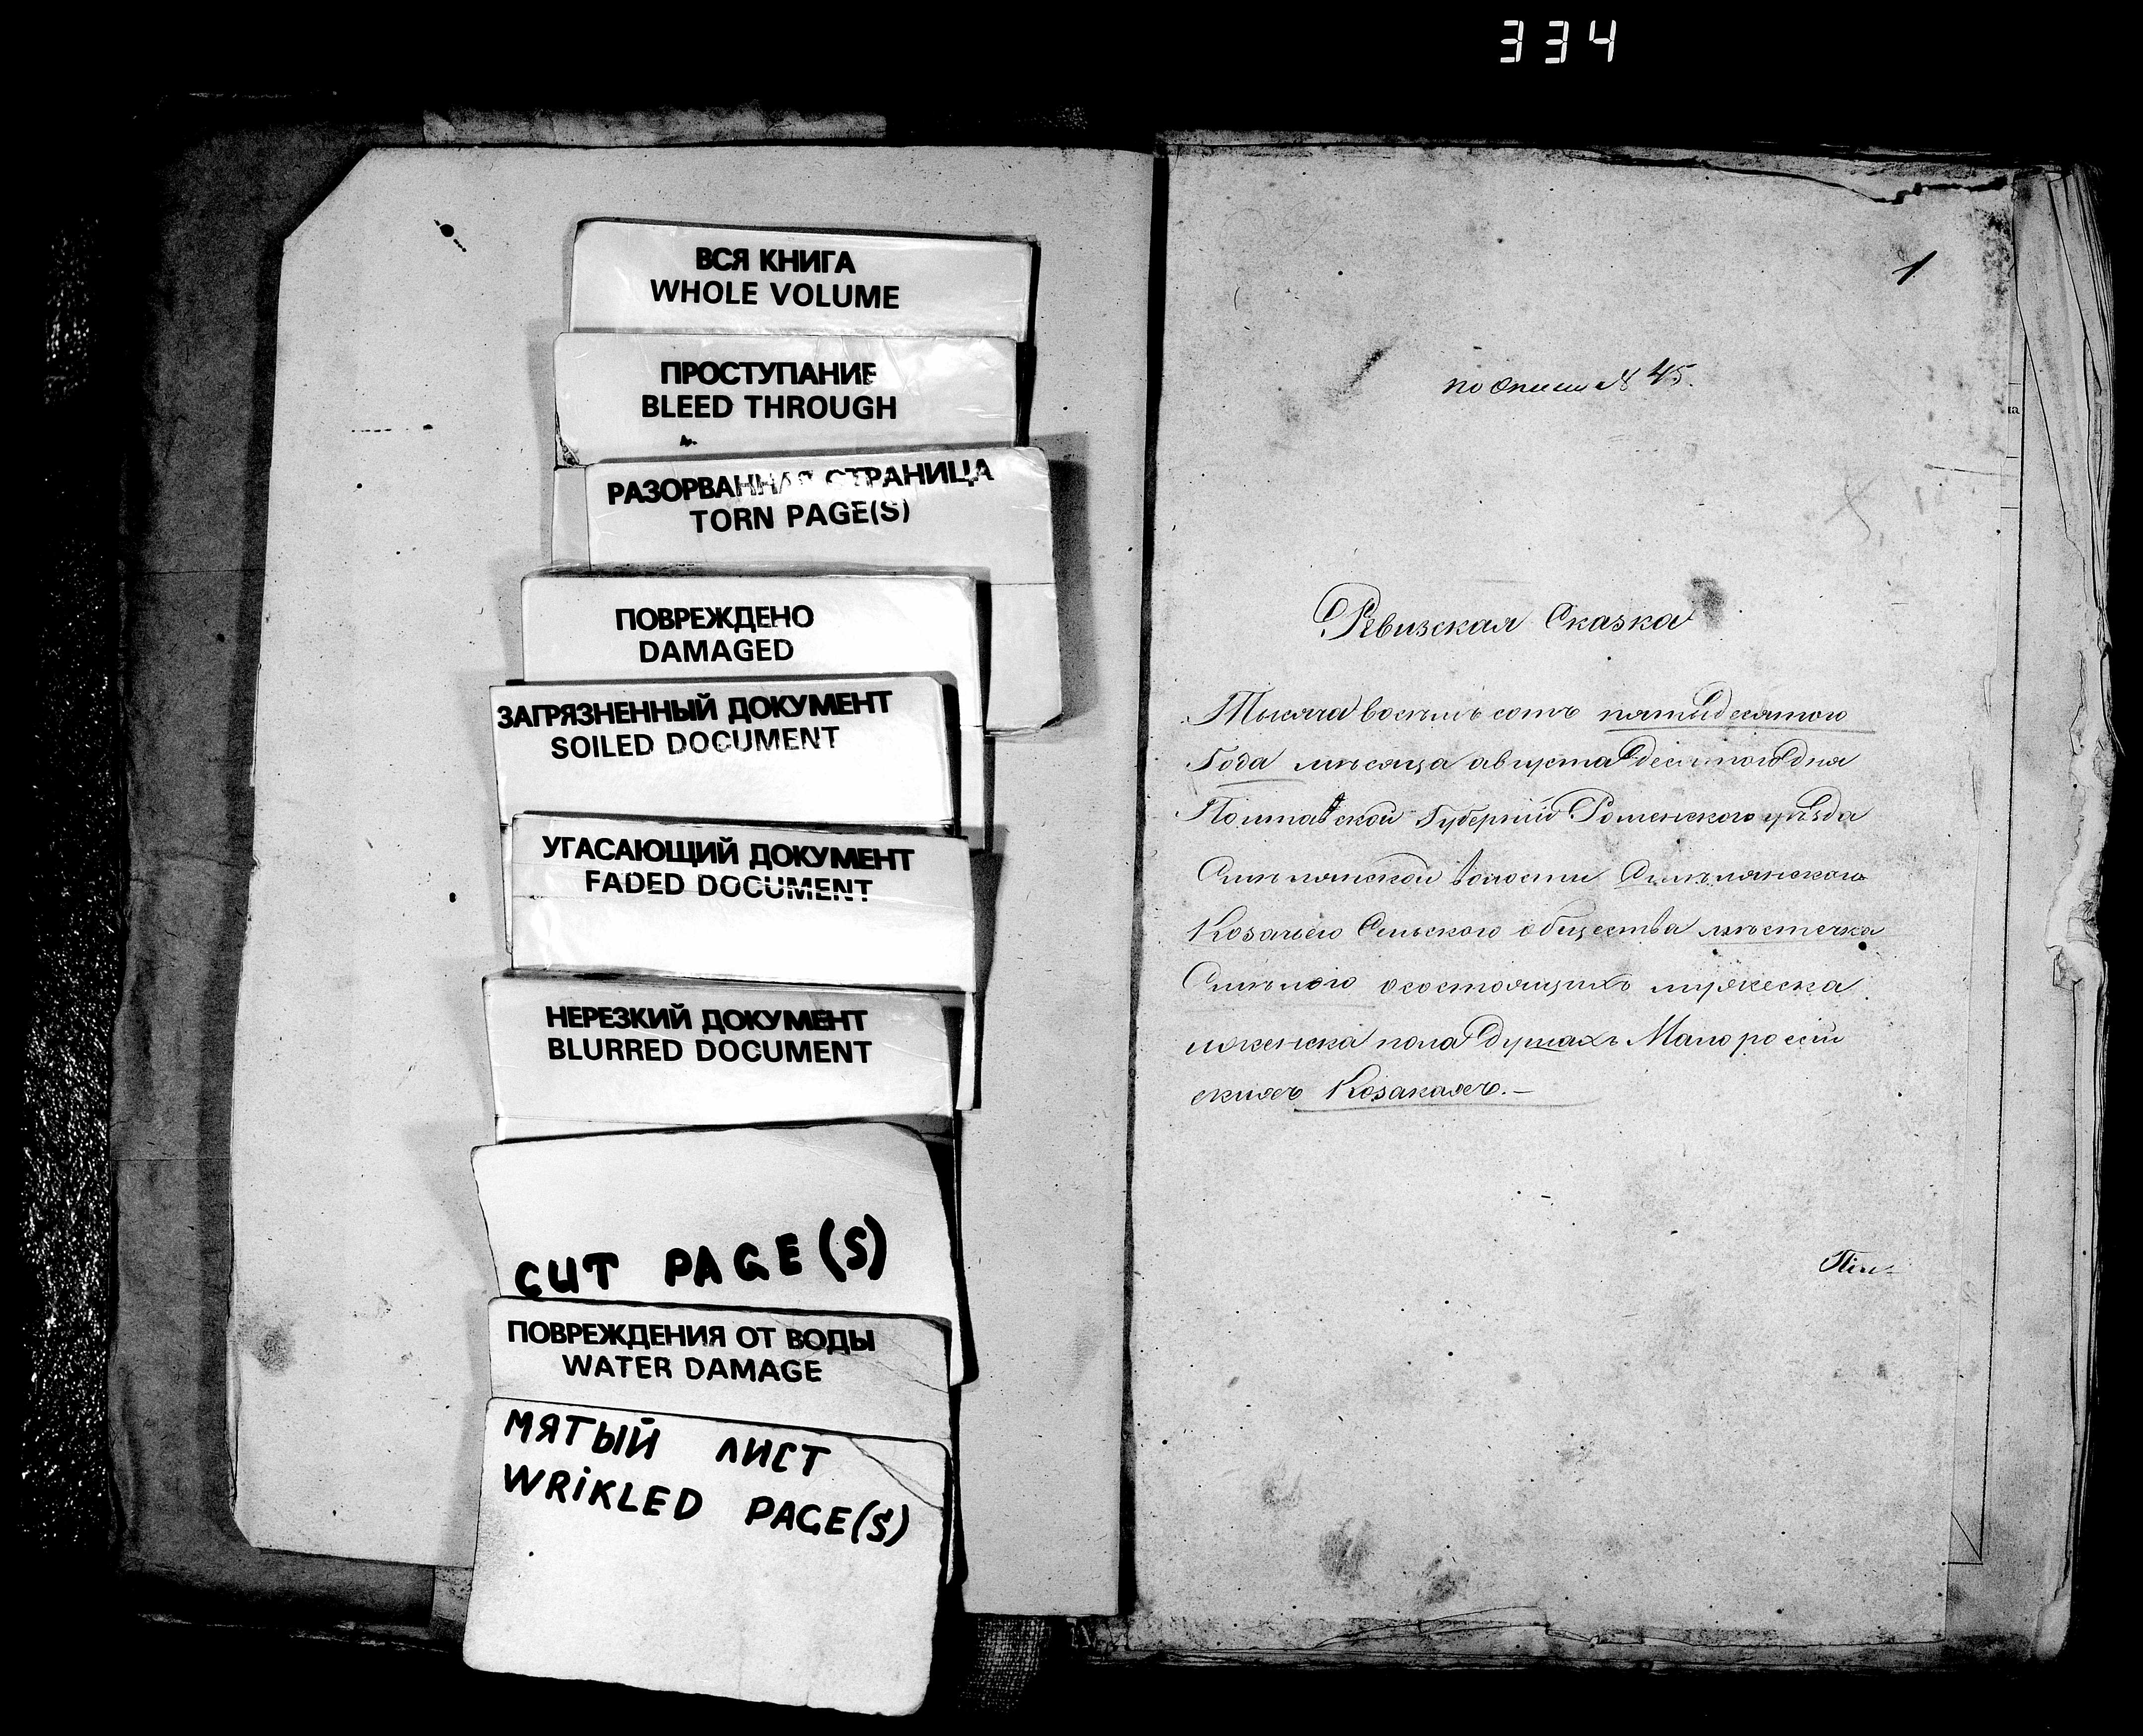 334
ВСЯ КНИГА
WHOLE VOLUME
ПРОСТУПАНИЕ
BLEED THROUGH
РАЗОРВАННАЯ СТРАНИЦА
TORN PAGE(S)
ПОВРЕЖДЕНО
DAMAGED
ЗАГРЯЗНЕННЫЙ ДОКУМЕНТ
SOILED DOCUMENT
УГАСАЮЩИЙ ДОКУМЕНТ
FADED DOCUMENT
НЕРЕЗКИЙ ДОКУМЕНТ
BLURRED DOCUMENT
CUT PAGE(S)
ПОВРЕЖДЕНИЯ ОТ ВОДЫ
WATER DAMAGE
МЯТЫЙ ЛИСТ
WRIKLED PAGE(S)
1
по описи № 45.
Ревизская Сказка
Тысяча восемь сотъ пятидесятого
Года месяца августа десятого дня
Полтавской Губернии Роменского уѣзда
Смѣлянской волости Смѣлянского
Козачего Сельского общества мѣстечка
Смѣлого о состоящихъ мужеска
и женска пола душахъ Малороссій
скихъ Козакахъ.—